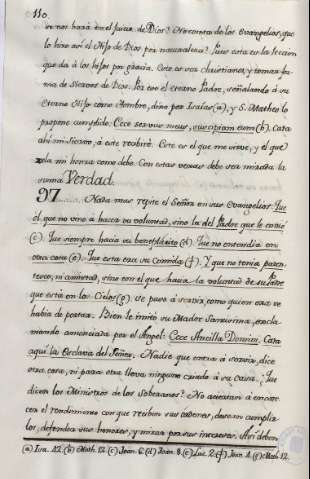 110.
se nos hará en el Juicio de Dios? No consta de los Evangelios, que
lo hizo asi el Hijo de Dios por naturaleza? Pues esta es la leccion
que dá á los hijos por gracia. Este es ser christianos, y tomar for-
ma de Siervos de Dios. Por eso el eterno Padre, señalando á su
Eterno Hijo como hombre, dixo por Isaías (a), y S. Matheo lo
propone cumplido. Ecce servus meus, suscipiam eum (b). Cata
ahi mi siervo, a este recibiré. Este es el que me sirve, y el que
zela mi honra como debe. Con estas veras debe ser mirada la
suma Verdad.
97. Nada mas repite el Señor en sus Evangelios: Que
el que no vino á hacer su voluntad, sino la del Padre que le envió
(c). Que siempre hacia su beneplácito (d). Que no entendia en
otra cosa (e). Que esta era su Comida (f). Y que no tenia paren-
tesco, ni amistad, sino con el que hacia la voluntad de su Padre
que está en los Cielos (g). se puso á servir, como quien
habia de portar. Bien le imitó su Madre Santisima, excla-
mando anunciada por el Angel: Ecce Ancilla Domini. Cata
aqui la Esclava del Señor. Nadie que entra á servir, dice
otra cosa, ni para otra lleva ninguno criado á su Casa. Que
dicen los Ministros de los Soberanos? No quexan á encare-
cer el rendimiento con que reciben sus ordenes, desean cumplir-
los, defender sus honores, y mirar por sus intereses. Asi deben
(a) Isa. 42. (b) Math. 12. (c) Joan. 6. (d) Joan. 8. (e) Luc. 2. (f) Joan. 4. (g) Math. 12.